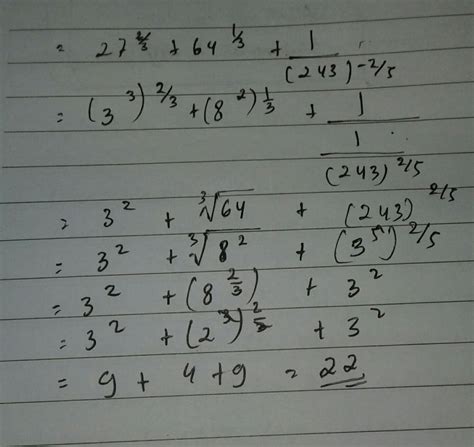 = 27^{2/3} + 64^{1/3} + \frac{1}{(243)^{-2/5}}
= (3^3)^{2/3} + (8^2)^{\frac{1}{3}} + \frac{1}{\frac{1}{(243)^{2/5}}}
= 3^2 + \sqrt[3]{64} + (243)^{2/5}
= 3^2 + \sqrt[3]{8^2} + (3^5)^{2/5}
= 3^2 + (8^{\frac{2}{3}}) + 3^2
= 3^2 + (2^3)^{\frac{2}{3}} + 3^2
= 9 + 4 + 9 = 22